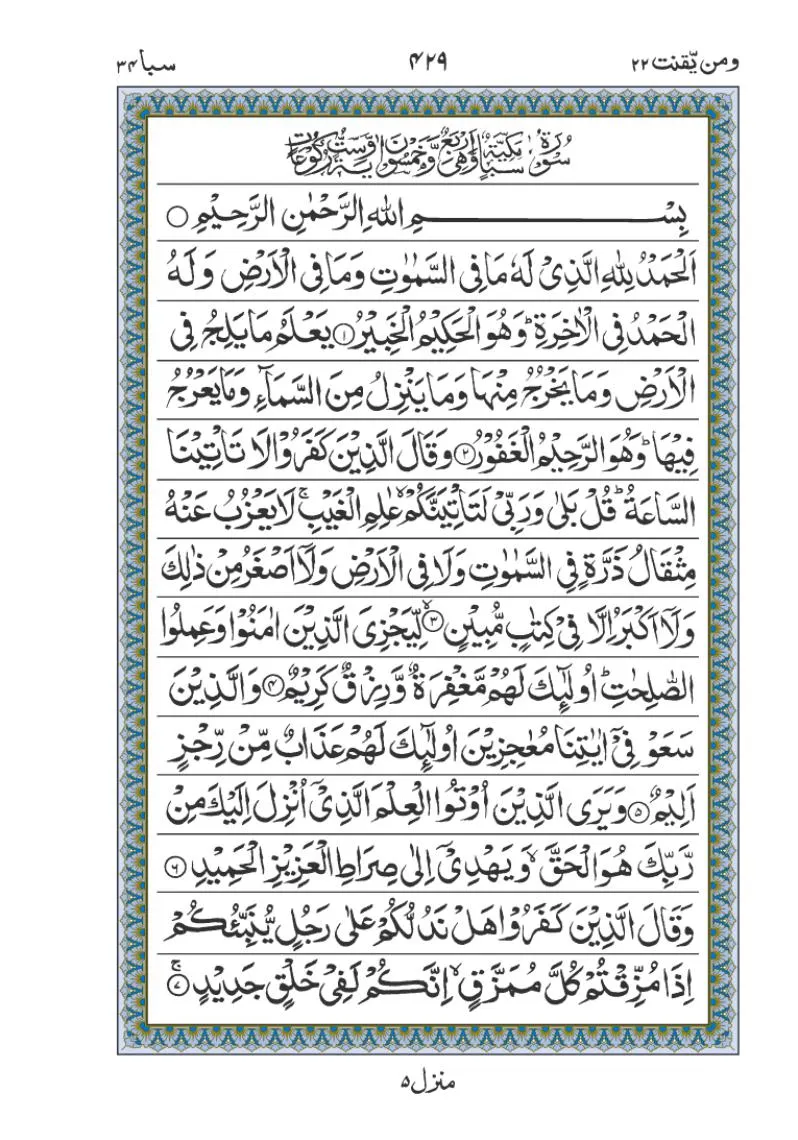 ومن یّقنت ۲۲ ۴۲۹ سبا ۳۴
سُوْرَةُ سَبَاٍ مَكِّيَّةٌ وَّهِيَ اَرْبَعٌ وَّخَمْسُوْنَ اٰيَةً وَّسِتُّ رُكُوْعَاتٍ
بِسْمِ اللّٰهِ الرَّحْمٰنِ الرَّحِيْمِ ○
اَلْحَمْدُ لِلّٰهِ الَّذِيْ لَهٗ مَا فِي السَّمٰوٰتِ وَمَا فِي الْاَرْضِ وَلَهُ
الْحَمْدُ فِي الْاٰخِرَةِ ؕ وَهُوَ الْحَكِيْمُ الْخَبِيْرُ ۝۱ يَعْلَمُ مَا يَلِجُ فِي
الْاَرْضِ وَمَا يَخْرُجُ مِنْهَا وَمَا يَنْزِلُ مِنَ السَّمَآءِ وَمَا يَعْرُجُ
فِيْهَا ؕ وَهُوَ الرَّحِيْمُ الْغَفُوْرُ ۝۲ وَقَالَ الَّذِيْنَ كَفَرُوْا لَا تَاْتِيْنَا
السَّاعَةُ ؕ قُلْ بَلٰى وَرَبِّيْ لَتَاْتِيَنَّكُمْ ۙ عٰلِمِ الْغَيْبِ ۚ لَا يَعْزُبُ عَنْهُ
مِثْقَالُ ذَرَّةٍ فِي السَّمٰوٰتِ وَلَا فِي الْاَرْضِ وَلَآ اَصْغَرُ مِنْ ذٰلِكَ
وَلَآ اَكْبَرُ اِلَّا فِيْ كِتٰبٍ مُّبِيْنٍ ۝۳ۙ لِّيَجْزِيَ الَّذِيْنَ اٰمَنُوْا وَعَمِلُوا
الصّٰلِحٰتِ ؕ اُولٰٓئِكَ لَهُمْ مَّغْفِرَةٌ وَّرِزْقٌ كَرِيْمٌ ۝۴ وَالَّذِيْنَ
سَعَوْ فِيْٓ اٰيٰتِنَا مُعٰجِزِيْنَ اُولٰٓئِكَ لَهُمْ عَذَابٌ مِّنْ رِّجْزٍ
اَلِيْمٌ ۝۵ وَيَرَى الَّذِيْنَ اُوْتُوا الْعِلْمَ الَّذِيْٓ اُنْزِلَ اِلَيْكَ مِنْ
رَّبِّكَ هُوَ الْحَقَّ ۙ وَيَهْدِيْٓ اِلٰى صِرَاطِ الْعَزِيْزِ الْحَمِيْدِ ۝۶
وَقَالَ الَّذِيْنَ كَفَرُوْا هَلْ نَدُلُّكُمْ عَلٰى رَجُلٍ يُّنَبِّئُكُمْ
اِذَا مُزِّقْتُمْ كُلَّ مُمَزَّقٍ ۙ اِنَّكُمْ لَفِيْ خَلْقٍ جَدِيْدٍ ۝۷ۚ
منزل ۵